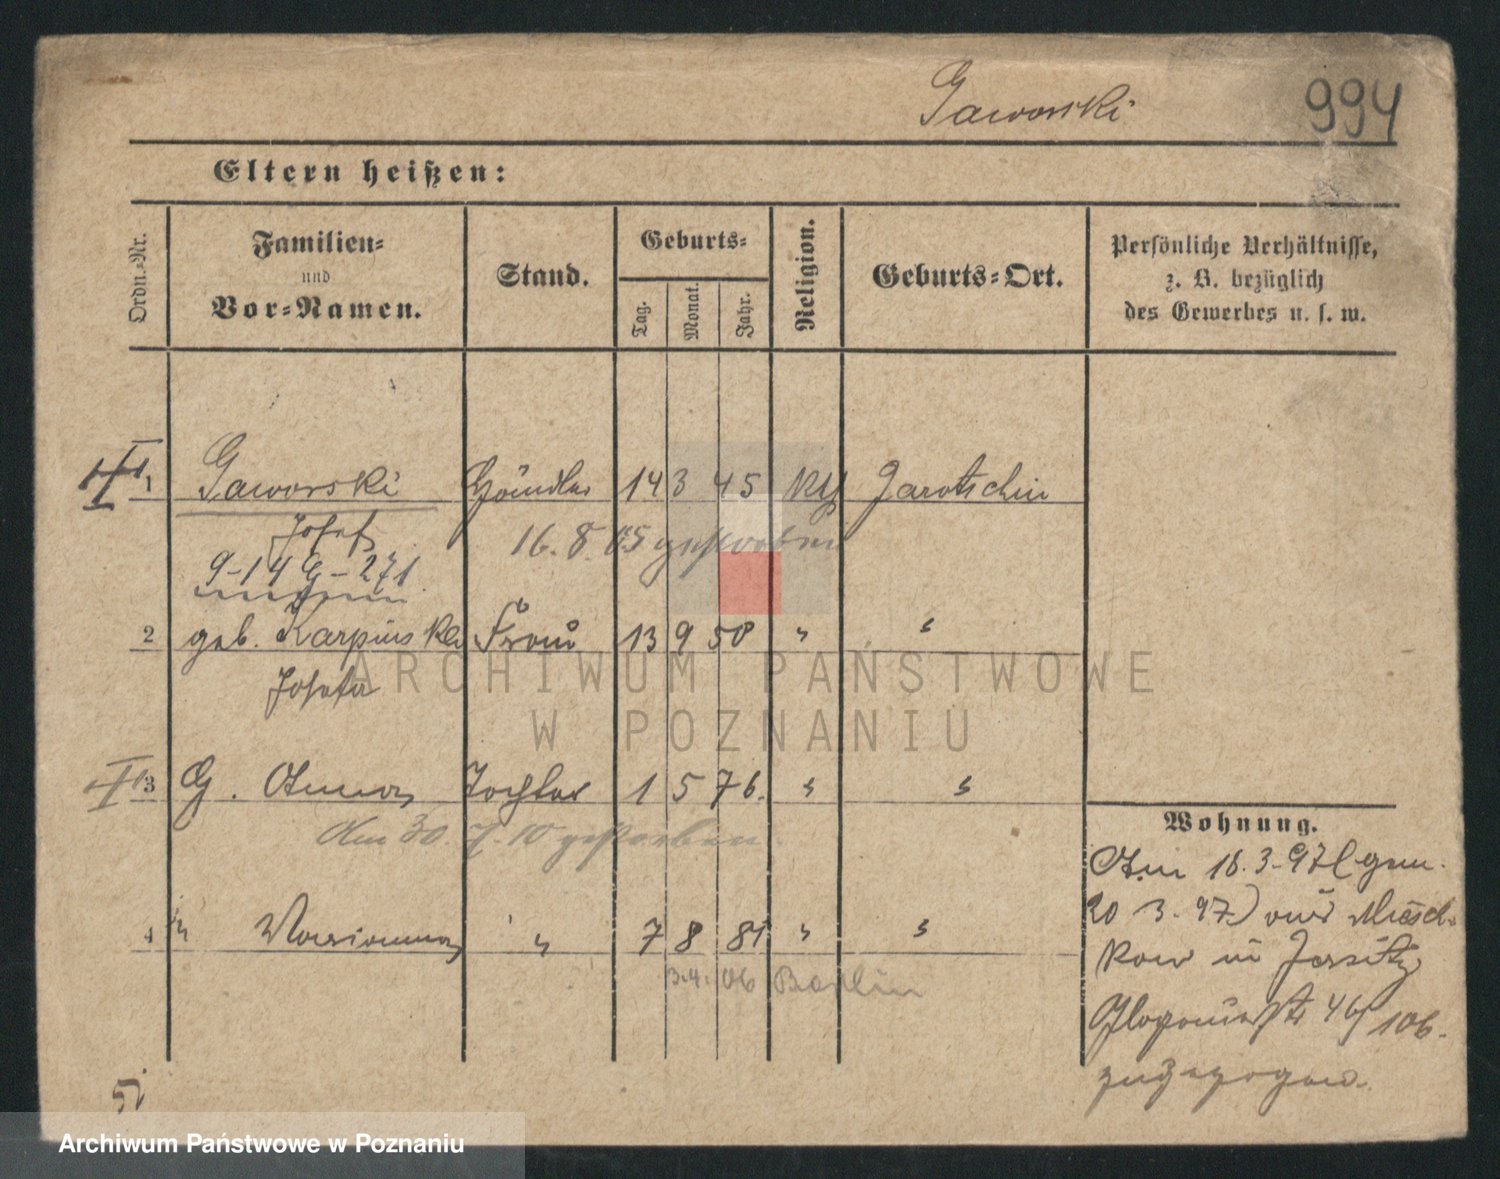 Gaworski
994
Eltern heißen:
Ordn.-Nr.
Familien-
und
Vor-Namen.
Stand.
Geburts-
Tag.
Monat.
Jahr.
Religion.
Geburts-Ort.
Persönliche Verhältnisse,
z. B. bezüglich
des Gewerbes u. s. w.
1 Gaworski Händler 14 3 45 Jarotschin
Josef 16. 8. 05 gestorben
9-14 G-271
2 geb. Karpinska Frau 13 9 50 " "
Josefa
3 G. Anna Tochter 1 5 76. " "
Am 30. 7. 10 gestorben
4 " Marianna " 7 8 81 " "
3.4.06 Berlin
Wohnung.
Am 18.3.97 (gem.
20 3.97) aus Miesch-
kow in Jersitz
Glogauerstr 46/106.
zugezogen.
ARCHIWUM PAŃSTWOWE
W POZNANIU
Archiwum Państwowe w Poznaniu